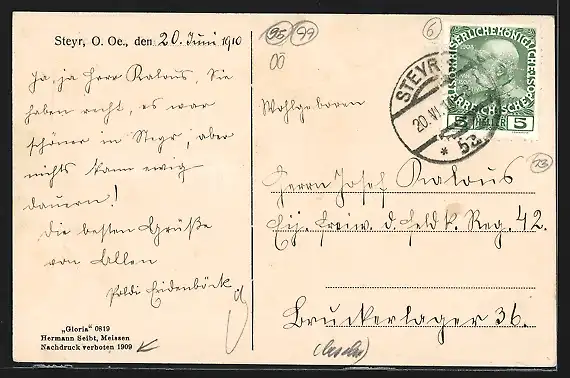 Steyr, O. Oe., den 20. Juni 1910
Ja, ja Herr Kalous, Sie
haben recht, es war
schöner in Steyr, aber
nichts kann ewig
dauern!
Die besten Grüße
von Allen
Poldi Eidenböck
„Gloria“ 0819
Hermann Seibt, Meissen
Nachdruck verboten 1909
95 99
00
6
KAISERLICHE KÖNIGLICHE
ÖSTERREICHISCHE
1908
5 HELLER 5
STEYR
20.VI.10
* 5a
Wohlgeboren
13
Herrn Josef Kalous
Einj. freiw. d. Feldk. Reg. 42.
Bruckerlager 36.